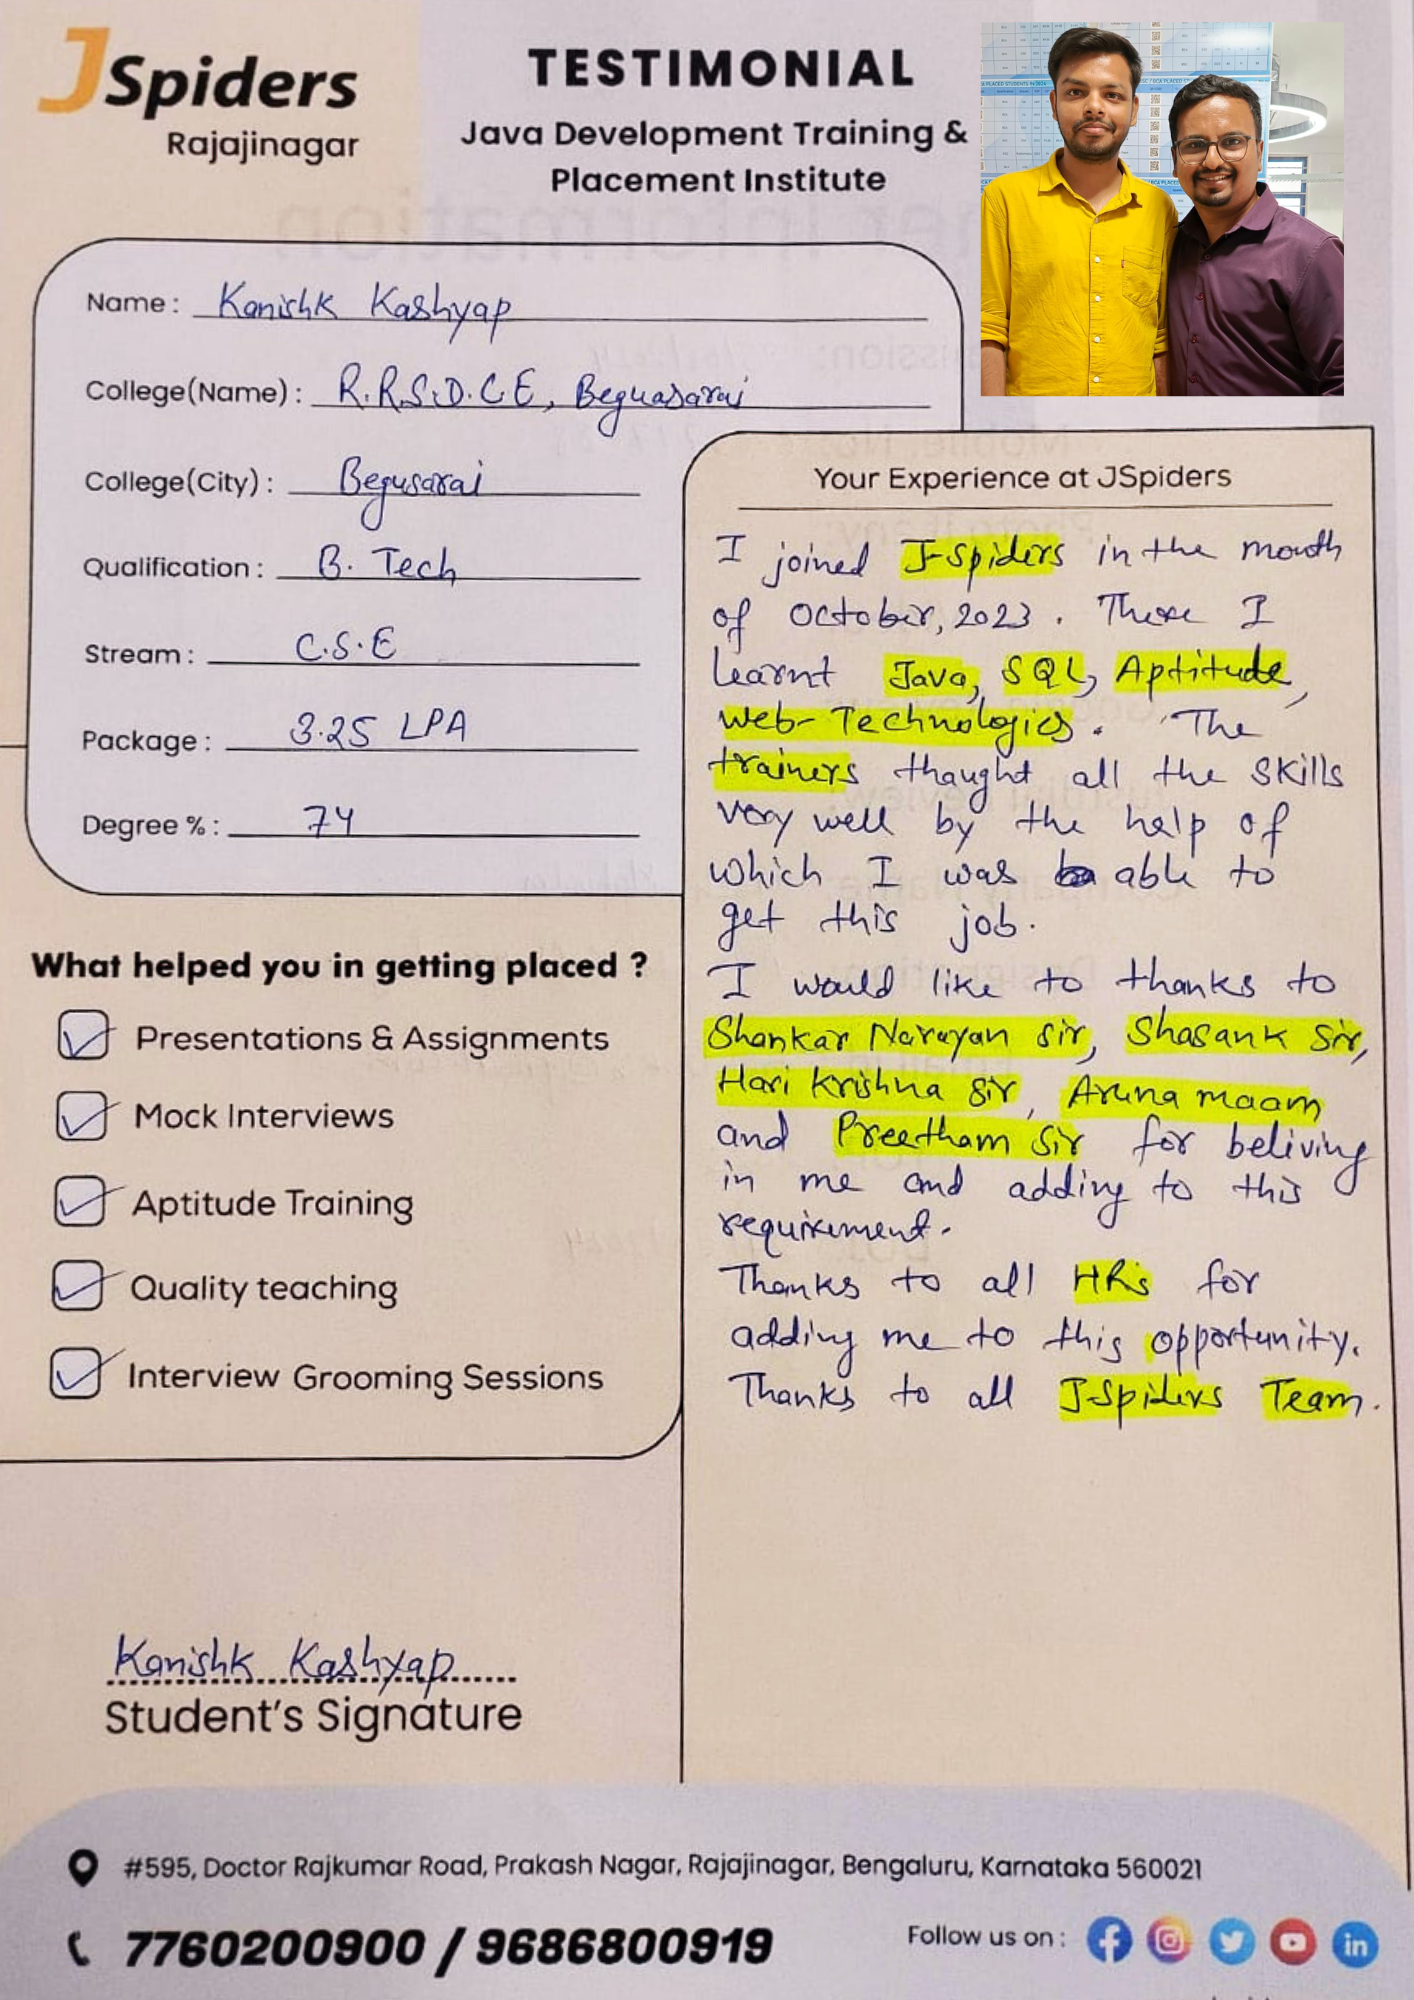 JSpiders
Rajajinagar
TESTIMONIAL
Java Development Training &
Placement Institute
Name : Kanishk Kashyap
College(Name) : R.R.S.D.C.E, Beguasarai
College(City) : Begusarai
Qualification : B. Tech
Stream : C.S.E
Package : 3.25 LPA
Degree % : 74
What helped you in getting placed ?
Presentations & Assignments
Mock Interviews
Aptitude Training
Quality teaching
Interview Grooming Sessions
Your Experience at JSpiders
I joined J-Spiders in the month
of October, 2023. There I
learnt Java, SQL, Aptitude,
web-Technologies. The
trainers thaught all the skills
very well by the help of
which I was able to
get this job.
I would like to thanks to
Shankar Narayan sir, Shasank Sir,
Hari Krishna sir, Aruna maam
and Preetham Sir for beliving
in me and adding to this
requirement.
Thanks to all HRs for
adding me to this opportunity.
Thanks to all J-Spiders Team.
Kanishk Kashyap
Student's Signature
#595, Doctor Rajkumar Road, Prakash Nagar, Rajajinagar, Bengaluru, Karnataka 560021
7760200900 / 9686800919
Follow us on :